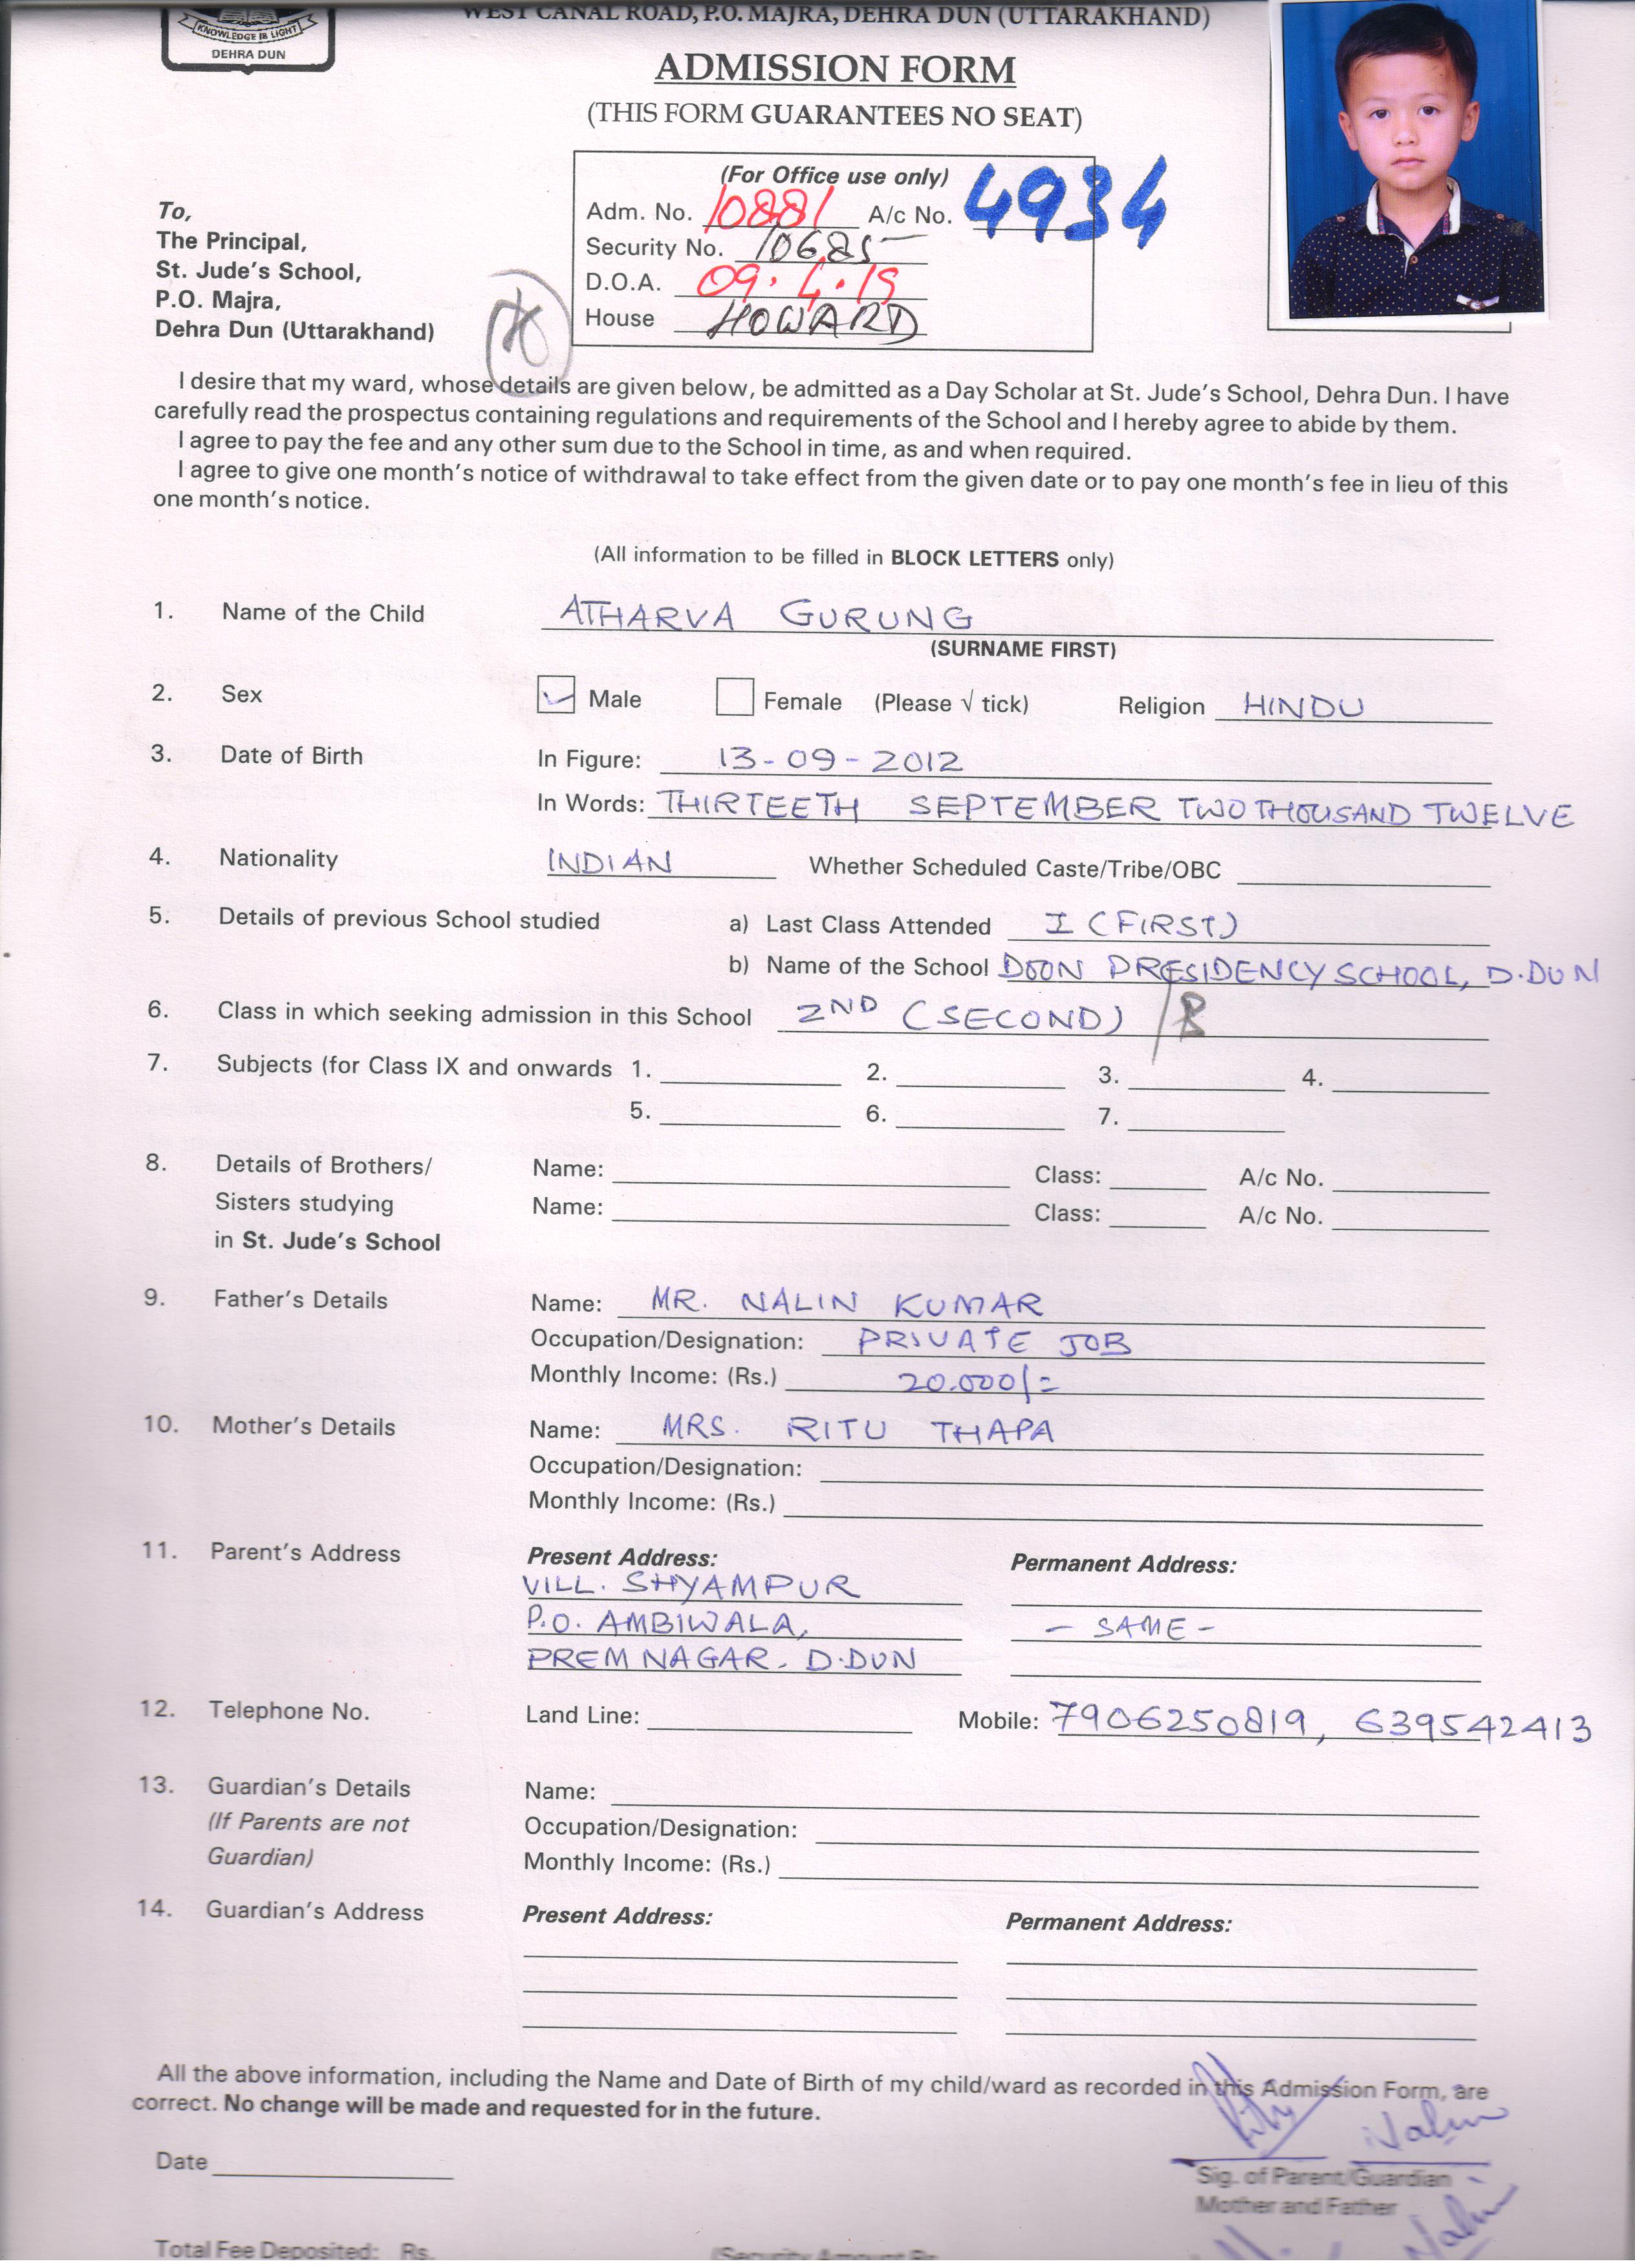 KNOWLEDGE IS LIGHT
DEHRA DUN
WEST CANAL ROAD, P.O. MAJRA, DEHRA DUN (UTTARAKHAND)
ADMISSION FORM
(THIS FORM GUARANTEES NO SEAT)
(For Office use only)
Adm. No. 10881 A/c No. 4934
Security No. 10685
D.O.A. 09.4.19
House HOWARD
To,
The Principal,
St. Jude's School,
P.O. Majra,
Dehra Dun (Uttarakhand)
I desire that my ward, whose details are given below, be admitted as a Day Scholar at St. Jude's School, Dehra Dun. I have
carefully read the prospectus containing regulations and requirements of the School and I hereby agree to abide by them.
I agree to pay the fee and any other sum due to the School in time, as and when required.
I agree to give one month's notice of withdrawal to take effect from the given date or to pay one month's fee in lieu of this
one month's notice.
(All information to be filled in BLOCK LETTERS only)
1. Name of the Child ATHARVA GURUNG
(SURNAME FIRST)
2. Sex Male Female (Please √ tick) Religion HINDU
3. Date of Birth In Figure: 13-09-2012
In Words: THIRTEETH SEPTEMBER TWO THOUSAND TWELVE
4. Nationality INDIAN Whether Scheduled Caste/Tribe/OBC
5. Details of previous School studied a) Last Class Attended I (FIRST)
b) Name of the School DOON PRESIDENCY SCHOOL, D.DUN
6. Class in which seeking admission in this School 2ND (SECOND) / B
7. Subjects (for Class IX and onwards 1. 2. 3. 4.
5. 6. 7.
8. Details of Brothers/ Name: Class: A/c No.
Sisters studying Name: Class: A/c No.
in St. Jude's School
9. Father's Details Name: MR. NALIN KUMAR
Occupation/Designation: PRIVATE JOB
Monthly Income: (Rs.) 20.000/=
10. Mother's Details Name: MRS. RITU THAPA
Occupation/Designation:
Monthly Income: (Rs.)
11. Parent's Address Present Address: Permanent Address:
VILL. SHYAMPUR
P.O. AMBIWALA, - SAME -
PREM NAGAR. D.DUN
12. Telephone No. Land Line: Mobile: 7906250819, 639542413
13. Guardian's Details Name:
(If Parents are not Occupation/Designation:
Guardian) Monthly Income: (Rs.)
14. Guardian's Address Present Address: Permanent Address:
All the above information, including the Name and Date of Birth of my child/ward as recorded in this Admission Form, are
correct. No change will be made and requested for in the future.
Ritu Nalin
Date
Sig. of Parent/Guardian
Mother and Father
Nalin
Total Fee Deposited: Rs. (Security Amount Rs.